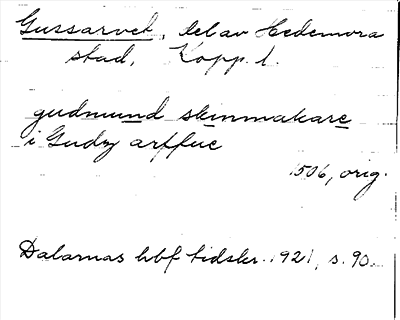 Gussarvet, del av Hedemora
stad, Kopp. l.
gudmund skinmakare
i Gudz arffue
1506, orig.
Dalarnas hbf tidskr. 1921, s. 90